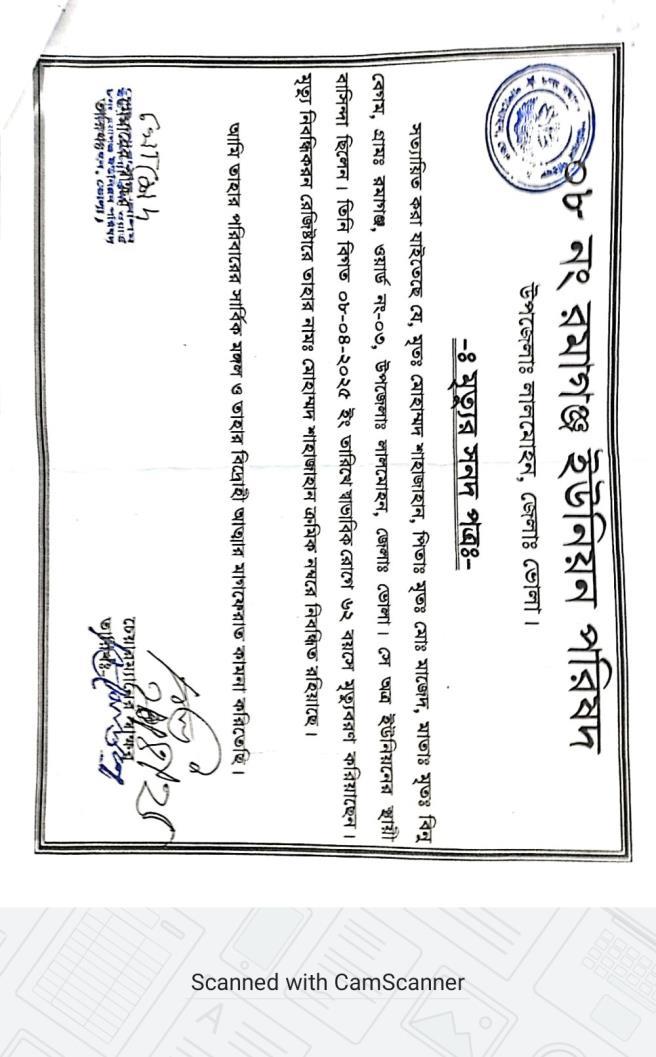 ০৮ নং রমাগঞ্জ ইউনিয়ন পরিষদ
উপজেলাঃ লালমোহন, জেলাঃ ভোলা।
-ঃ মৃত্যুর সনদ পত্রঃ-
সত্যায়িত করা যাইতেছে যে, মৃতঃ মোহাম্মদ শাহাজাহান, পিতাঃ মৃতঃ মোঃ মাজেদ, মাতাঃ মৃতঃ বিবু
বেগম, গ্রামঃ রমাগঞ্জ, ওয়ার্ড নং-০৩, উপজেলাঃ লালমোহন, জেলাঃ ভোলা। সে অত্র ইউনিয়নের স্থায়ী
বাসিন্দা ছিলেন। তিনি বিগত ০৮-০৪-২০২৫ ইং তারিখে স্বাভাবিক রোগে ৬২ বয়সে মৃত্যুবরণ করিয়াছেন।
মৃত্যু নিবন্ধিকরন রেজিষ্টারে তাহার নামঃ মোহাম্মদ শাহাজাহান ক্রমিক নম্বরে নিবন্ধিত রহিয়াছে।
আমি তাহার পরিবারের সার্বিক মঙ্গল ও তাহার বিদেহী আত্মার মাগফেরাত কামনা করিতেছি।
চেয়ারম্যানের স্বাক্ষর
তারিখঃ-
Scanned with CamScanner